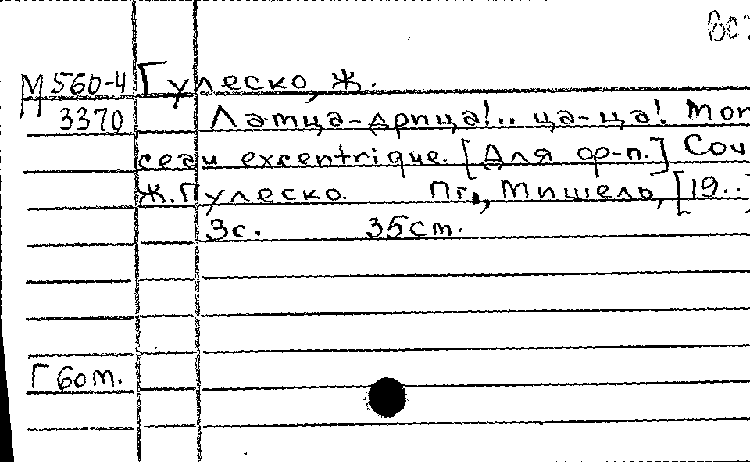 М 560-4 Гулеско, Ж.
3370 Ламца-дрица!.. ца-ца! Mor
ceau excentrique. [Для ор-п.] Соч
Ж. Гулеско. Пг., Мишель, [19..
3с. 35см.
Г 60т.